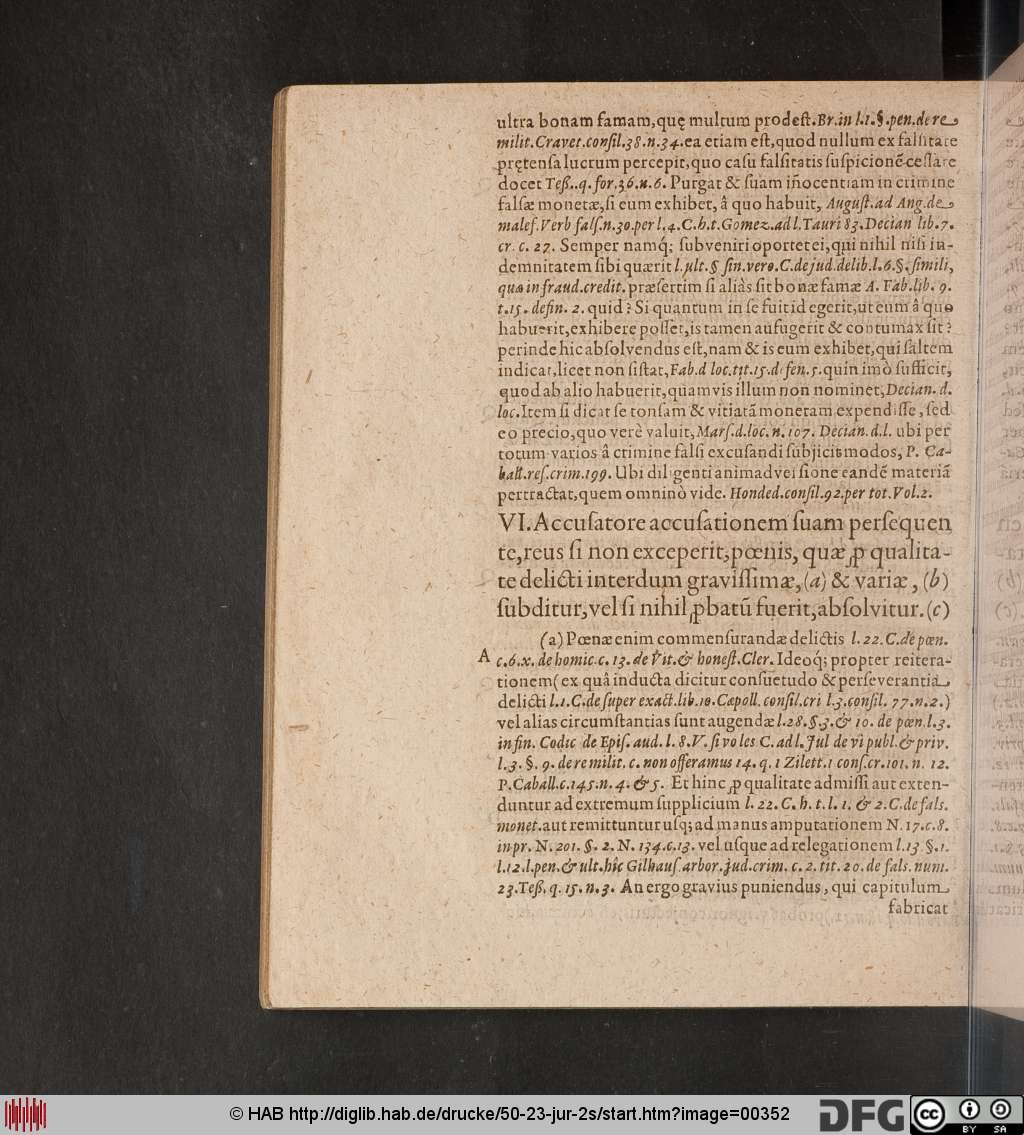 ultra bonam famam,quę multum prodeſt.Br.in l.1.§.pen.de re
milit.Cravet.conſil.38.n.34.ea etiam eſt,quod nullum ex falſitate
prętenſa lucrum percepit,quo caſu falſitatis ſuſpicionẽ ceſſare
docet Teſſ..q.for.36.n.6. Purgat & ſuam iñocentiam in crimine
falſæ monetæ,ſi eum exhibet, â quo habuit, Auguſt.ad Ang.de
malef.Verb falſ.n.30.per l.4.C.h.t.Gomez.ad l.Tauri 83.Decian lib.7.
cr. c. 27. Semper namq; ſubveniri oportet ei,qui nihil niſi in-
demnitatem ſibi quærit l.ult.§ ſin.vero.C.de jud.delib.l.6.§.ſimili,
quæ in fraud.credit.præſertim ſi aliàs ſit bonæ famæ A. Fab.lib. 9.
t.15. defin. 2. quid ? Si quantum in ſe fuit id egerit,ut eum â quo
habuerit,exhibere poſſet,is tamen aufugerit & contumax ſit ?
perinde hic abſolvendus eſt,nam & is eum exhibet,qui ſaltem
indicat,licet non ſiſtat,Fab.d loc.tit.15.defen.5.quin imò ſufficit,
quod ab alio habuerit,quamvis illum non nominet,Decian. d.
loc.Item ſi dicat ſe tonſam & vitiatã monetam expendiſſe, ſed
eo precio,quo verè valuit,Marſ.d.loc.n.107. Decian.d.l. ubi per
totum varios â crimine falſi excuſandi ſubjicit modos, P. Ca-
ball.reſ.crim.199. Ubi diligenti animadverſione eandẽ materiã
pertractat,quem omninò vide. Honded.conſil.92.per tot.Vol.2.
VI. Accuſatore accuſationem ſuam perſequen
te,reus ſi non exceperit,pœnis, quæ ꝓ qualita-
te delicti interdum graviſſimæ,(a) & variæ, (b)
ſubditur,vel ſi nihil ꝓbatũ fuerit,abſolvitur.(c)
(a) Pœnæ enim commenſurandæ delictis l. 22. C.de pœn.
A c.6.x. de homic.c. 13. de Vit.& honeſt.Cler. Ideoq́; propter reitera-
tionem ( ex quâ inducta dicitur conſuetudo & perſeverantia
delicti l.1.C.de ſuper exact.lib.10.Capoll. conſil.cri l.3.conſil. 77.n.2.)
vel alias circumſtantias ſunt augendæ l.28.§.3.& 10. de pœn.l.3.
in fin. Codic de Epiſ. aud. l. 8.V. ſi vo les C. ad l. Jul de vi publ.& priv.
l.3. §. 9. de re milit. c. non offeramus 14. q. 1 Zilett.1 conſ.cr.101.n. 12.
P.Caball.c.145.n. 4. & 5. Et hinc ꝓ qualitate admiſſi aut exten-
duntur ad extremum ſupplicium l. 22. C. h. t. l. 1. & 2.C.de falſ.
monet.aut remittuntur uſq; ad manus amputationem N. 17.c.8.
in pr. N. 201. §. 2. N. 134.c.13. vel uſque ad relegationem l.13 §.1.
l.12.l.pen.& ult.hîc Gilhauſ.arbor.jud.crim. c. 2. tit. 20. de falſ. num.
23.Teſſ. q. 15. n. 3. An ergo gravius puniendus, qui capitulum
fabricat
© HAB http://diglib.hab.de/drucke/50-23-jur-2s/start.htm?image=00352
DFG
cc BY SA